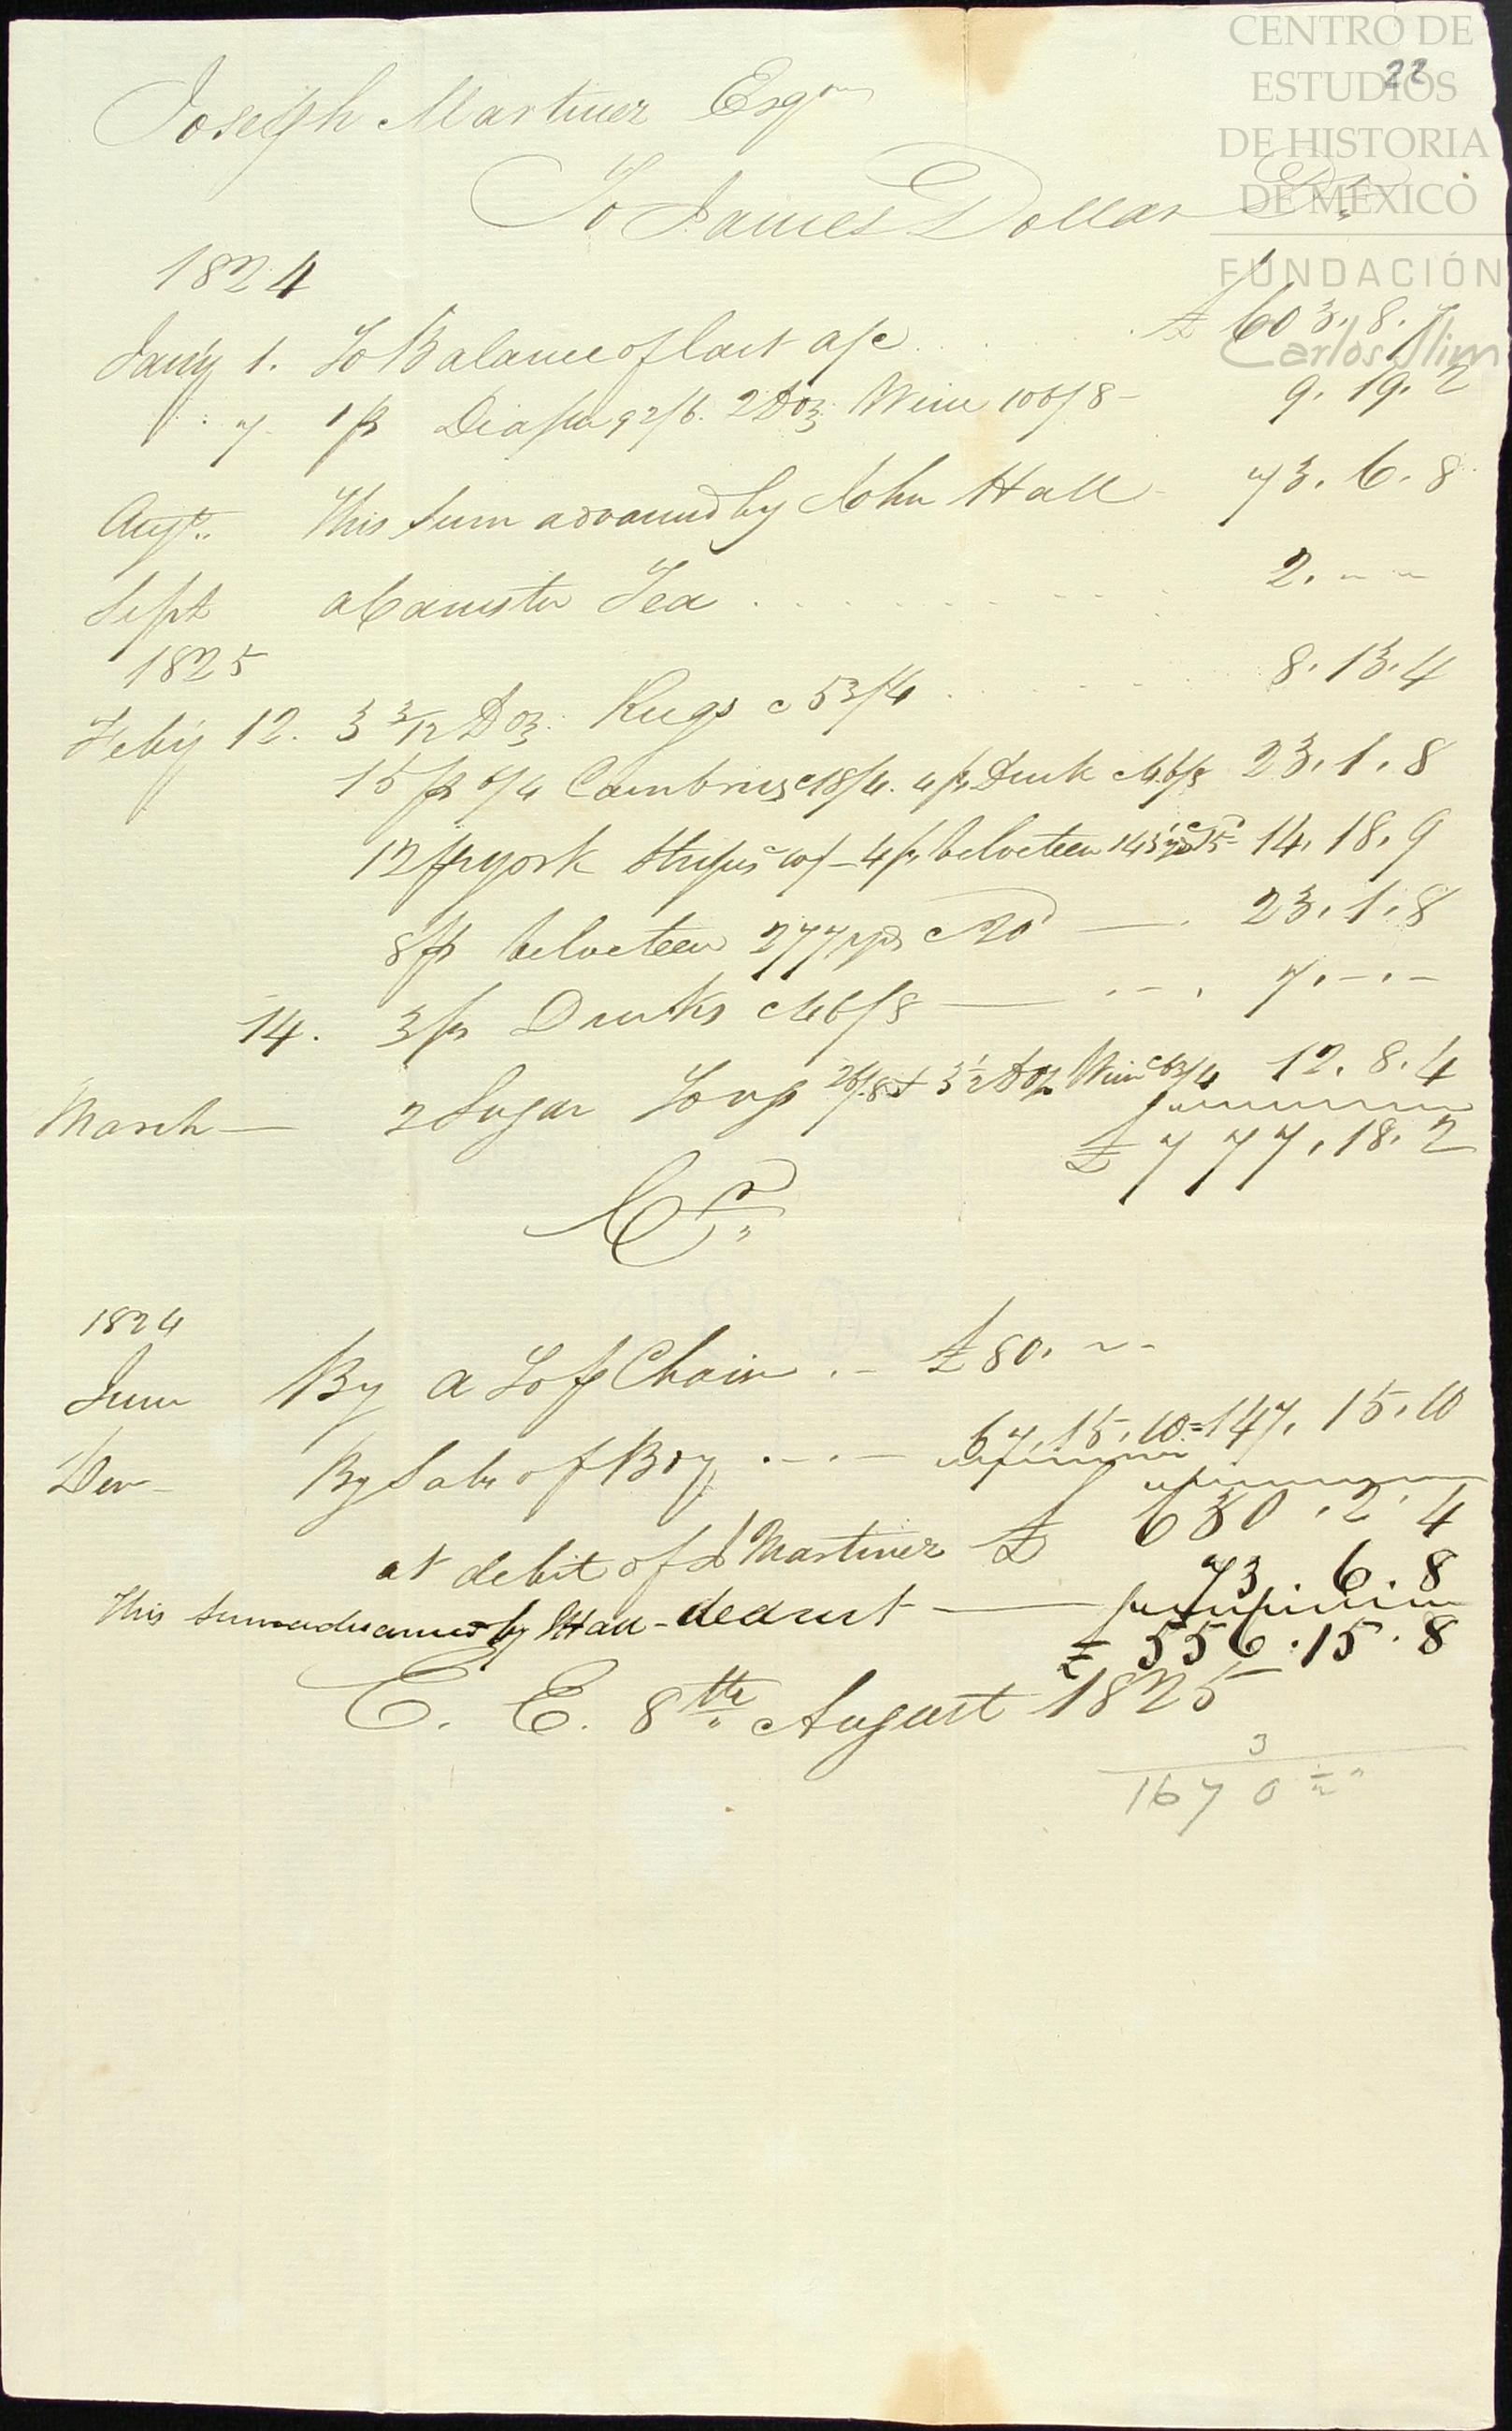 CENTRO DE
ESTUDIOS
DE HISTORIA
DE MÉXICO
FUNDACIÓN
Carlos Slim
22
Joseph Martinez Esqr
To James Dollar Dr
1824
Jany 1. To Balance of last a/c £ 603. 8. 7
" 7 1 ps Diaper 92/6. 2 Doz Wine 106/8 - 9. 19. 2
Augt This Sum advanced by John Hall - 73. 6. 8
Sept a Canister Tea . . . . . 2. - -
1825
Feby 12. 3 3/12 Doz. Rugs @ 53/4 . . . 8. 13. 4
15 ps 6/4 Cambrics @ 18/4. 4 ps Duck @ 46/8 23. 1. 8
12 ps york Stripes @ 10/- 4 ps Velveteen 143 yds @ 15d 14. 18. 9
8 ps Velveteen 277 yds @ 20d — . 23. 1. 8
14. 3 ps Ducks @ 46/8 — - - . 7. - . -
March — 2 Sugar 26/8 & 3 1/2 Doz Wine @ 63/4 12. 8. 4
£ 777. 18. 2
Cr
1824
June By a Chain . - £ 80. - -
Dec - By Sale of Boy . - . - 67. 15. 10 = 147. 15. 10
at debit of J Martinez £ 630. 2. 4
This Sum advanced by J Hall - deduct — 73. 6. 8
£ 556. 15. 8
E. E. 8th August 1825
3
1670